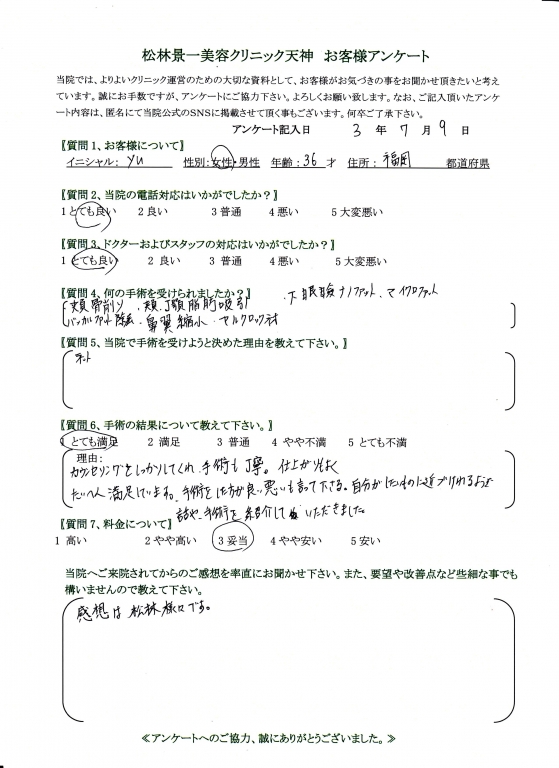 松林景一美容クリニック天神　お客様アンケート
当院では、よりよいクリニック運営のための大切な資料として、お客様がお気づきの事をお聞かせ頂きたいと考え
ています。誠にお手数ですが、アンケートにご協力下さい。よろしくお願い致します。なお、ご記入頂いたアンケ
ート内容は、匿名にて当院公式のSNSに掲載させて頂く事もございます。何卒ご了承下さい。
アンケート記入日　3 年 7 月 9 日
〖質問1、お客様について〗
イニシャル: yu　性別:女性・男性　年齢:36才　住所: 福岡　都道府県
〖質問2、当院の電話対応はいかがでしたか?〗
1 とても良い　2 良い　3 普通　4 悪い　5 大変悪い
〖質問3、ドクターおよびスタッフの対応はいかがでしたか?〗
1 とても良い　2 良い　3 普通　4 悪い　5 大変悪い
〖質問4、何の手術を受けられましたか?〗　・下眼瞼ナノファット、マイクロファット
頬骨削り、頬、顎脂肪吸引
バッカルファット除去、鼻翼縮小、マルクロック法
〖質問5、当院で手術を受けようと決めた理由を教えて下さい。〗
ネット
〖質問6、手術の結果について教えて下さい。〗
1 とても満足　2 満足　3 普通　4 やや不満　5 とても不満
理由:
カウンセリングをしっかりしてくれ、手術も丁寧。仕上がりもよく
たいへん満足しています。手術をした方が良い悪いも言って下さる。自分がしたいものに近づけれるよう
話や、手術を紹介して いただきました。
〖質問7、料金について〗
1 高い　2 やや高い　3 妥当　4 やや安い　5 安い
当院へご来院されてからのご感想を率直にお聞かせ下さい。また、要望や改善点など些細な事でも
構いませんので教えて下さい。
感想は松林様々です。
≪アンケートへのご協力、誠にありがとうございました。≫